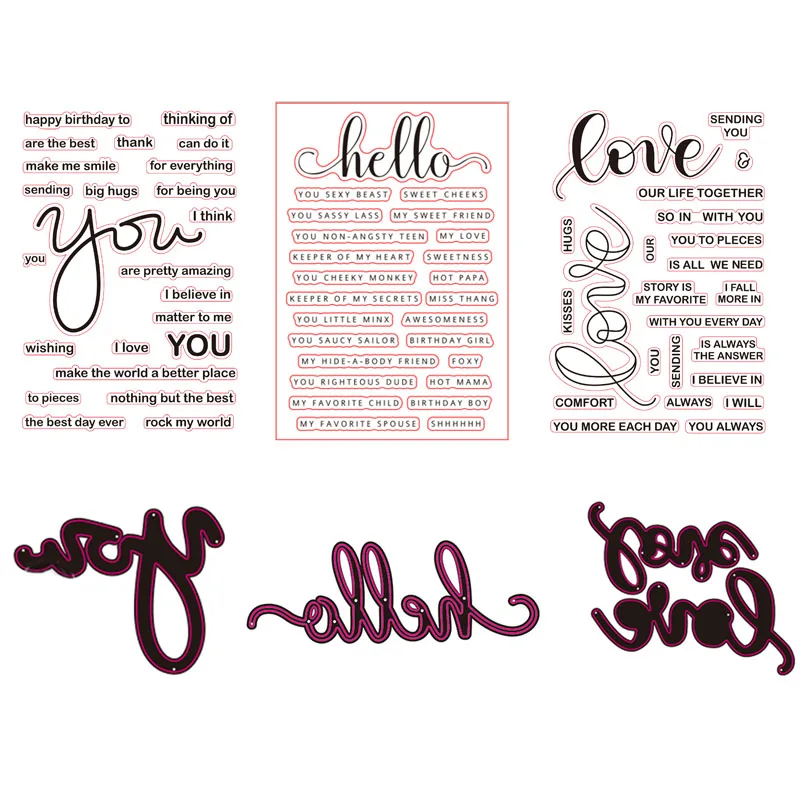 happy birthday to thinking of
are the best thank can do it
make me smile for everything
sending big hugs for being you
I think
you
you
are pretty amazing
I believe in
matter to me
wishing I love YOU
make the world a better place
to pieces nothing but the best
the best day ever rock my world
hello
YOU SEXY BEAST SWEET CHEEKS
YOU SASSY LASS MY SWEET FRIEND
YOU NON-ANGSTY TEEN MY LOVE
KEEPER OF MY HEART SWEETNESS
YOU CHEEKY MONKEY HOT PAPA
KEEPER OF MY SECRETS MISS THANG
YOU LITTLE MINX AWESOMENESS
YOU SAUCY SAILOR BIRTHDAY GIRL
MY HIDE-A-BODY FRIEND FOXY
YOU RIGHTEOUS DUDE HOT MAMA
MY FAVORITE CHILD BIRTHDAY BOY
MY FAVORITE SPOUSE SHHHHHH
SENDING
YOU
love &
OUR LIFE TOGETHER
SO IN WITH YOU
HUGS
OUR
YOU TO PLECES
IS ALL WE NEED
KISSES
love
STORY IS
MY FAVORITE
I FALL
MORE IN
WITH YOU EVERY DAY
YOU
SENDING
IS ALWAYS
THE ANSWER
I BELIEVE IN
COMFORT ALWAYS I WILL
YOU MORE EACH DAY YOU ALWAYS
you
hello
love
love